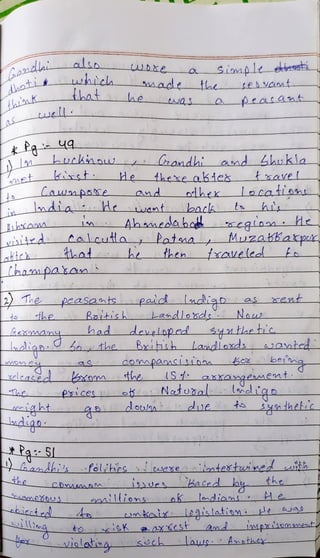 Gandhi also wore a simple dhoti
dhoti which made the servant
think that he was a peasant
as well.
* Pg :- 49
1) In Lucknow, Gandhi and Shukla
met first. He thereafter travel
to Cawnpore and other locations
in India. He went back to his
Ashram in Ahmedabad region. He
visited Calcutta, Patna, Muzaffarpur
after that he then traveled to
Champaran.
2) The peasants paid Indigo as rent
to the British Landlords. Now
Germany had developed synthetic
Indigo. So, the British Landlords wanted
money as compancision for being
released from the 15% arrangement.
The prices of Natural Indigo
might go down due to synthetic
Indigo.
* Pg :- 51
1) Gandhi's Politics were intertwined with
the common issues faced by the
numerous millions of Indians. He
objected to unfair legislation. He was
willing to risk arrest and imprisonment
for violating such laws. Another